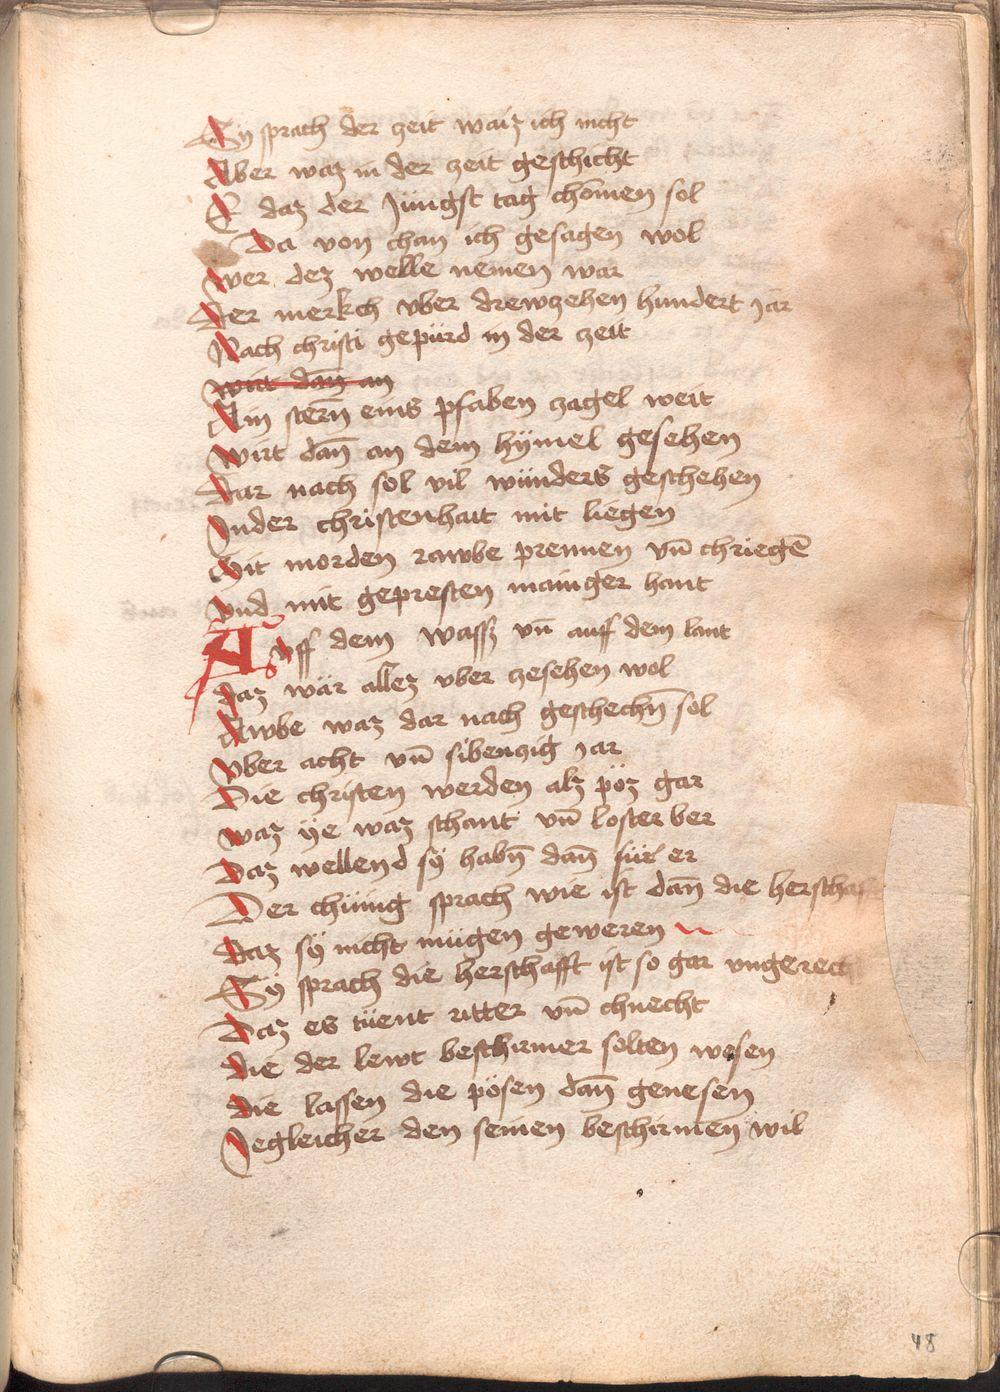 Sy sprach der zeit waiz ich nicht
Aber waz in der zeit geschicht
E daz der Jüngst tag chömen sol
Da von chan ich gesagen wol
wer dez welle nemen war
Der merkch vber drewzehen hundert jar
Nach christi gepürd in der zeit
wirt dan̄ an
Ain stern̄ eins pfaben zagel weit
wirt dan̄ an dem hymel gesehen
Dar nach sol vil wünders geschehen
Inder christenhait mit liegen
Mit morden rawbe prennen vn̄ chriegē
vnd mit gepresten mainger hant
Avff dem wassz vn̄ auff dem lant
daz wär allez vber zesehen wol
Awbe waz dar nach geschechn̄ sol
vber acht vn̄ sibenzig jar
Die christen werden alz pöz gar
waz ÿe waz schant vn̄ loster ber
Daz wellend sÿ habn̄ dan̄ für er
Der chünig sprach wie ist dan̄ die herschaft
daz sÿ nicht mügen geweren
Sÿ sprach die herschafft ist so gar vngerecht
Daz es tüent ritter vn̄ chnecht
die der lewt beschirmer solten wesen
die lassen die pösen dan̄ genesen
Iegleicher den seinen beschirmen wil
48